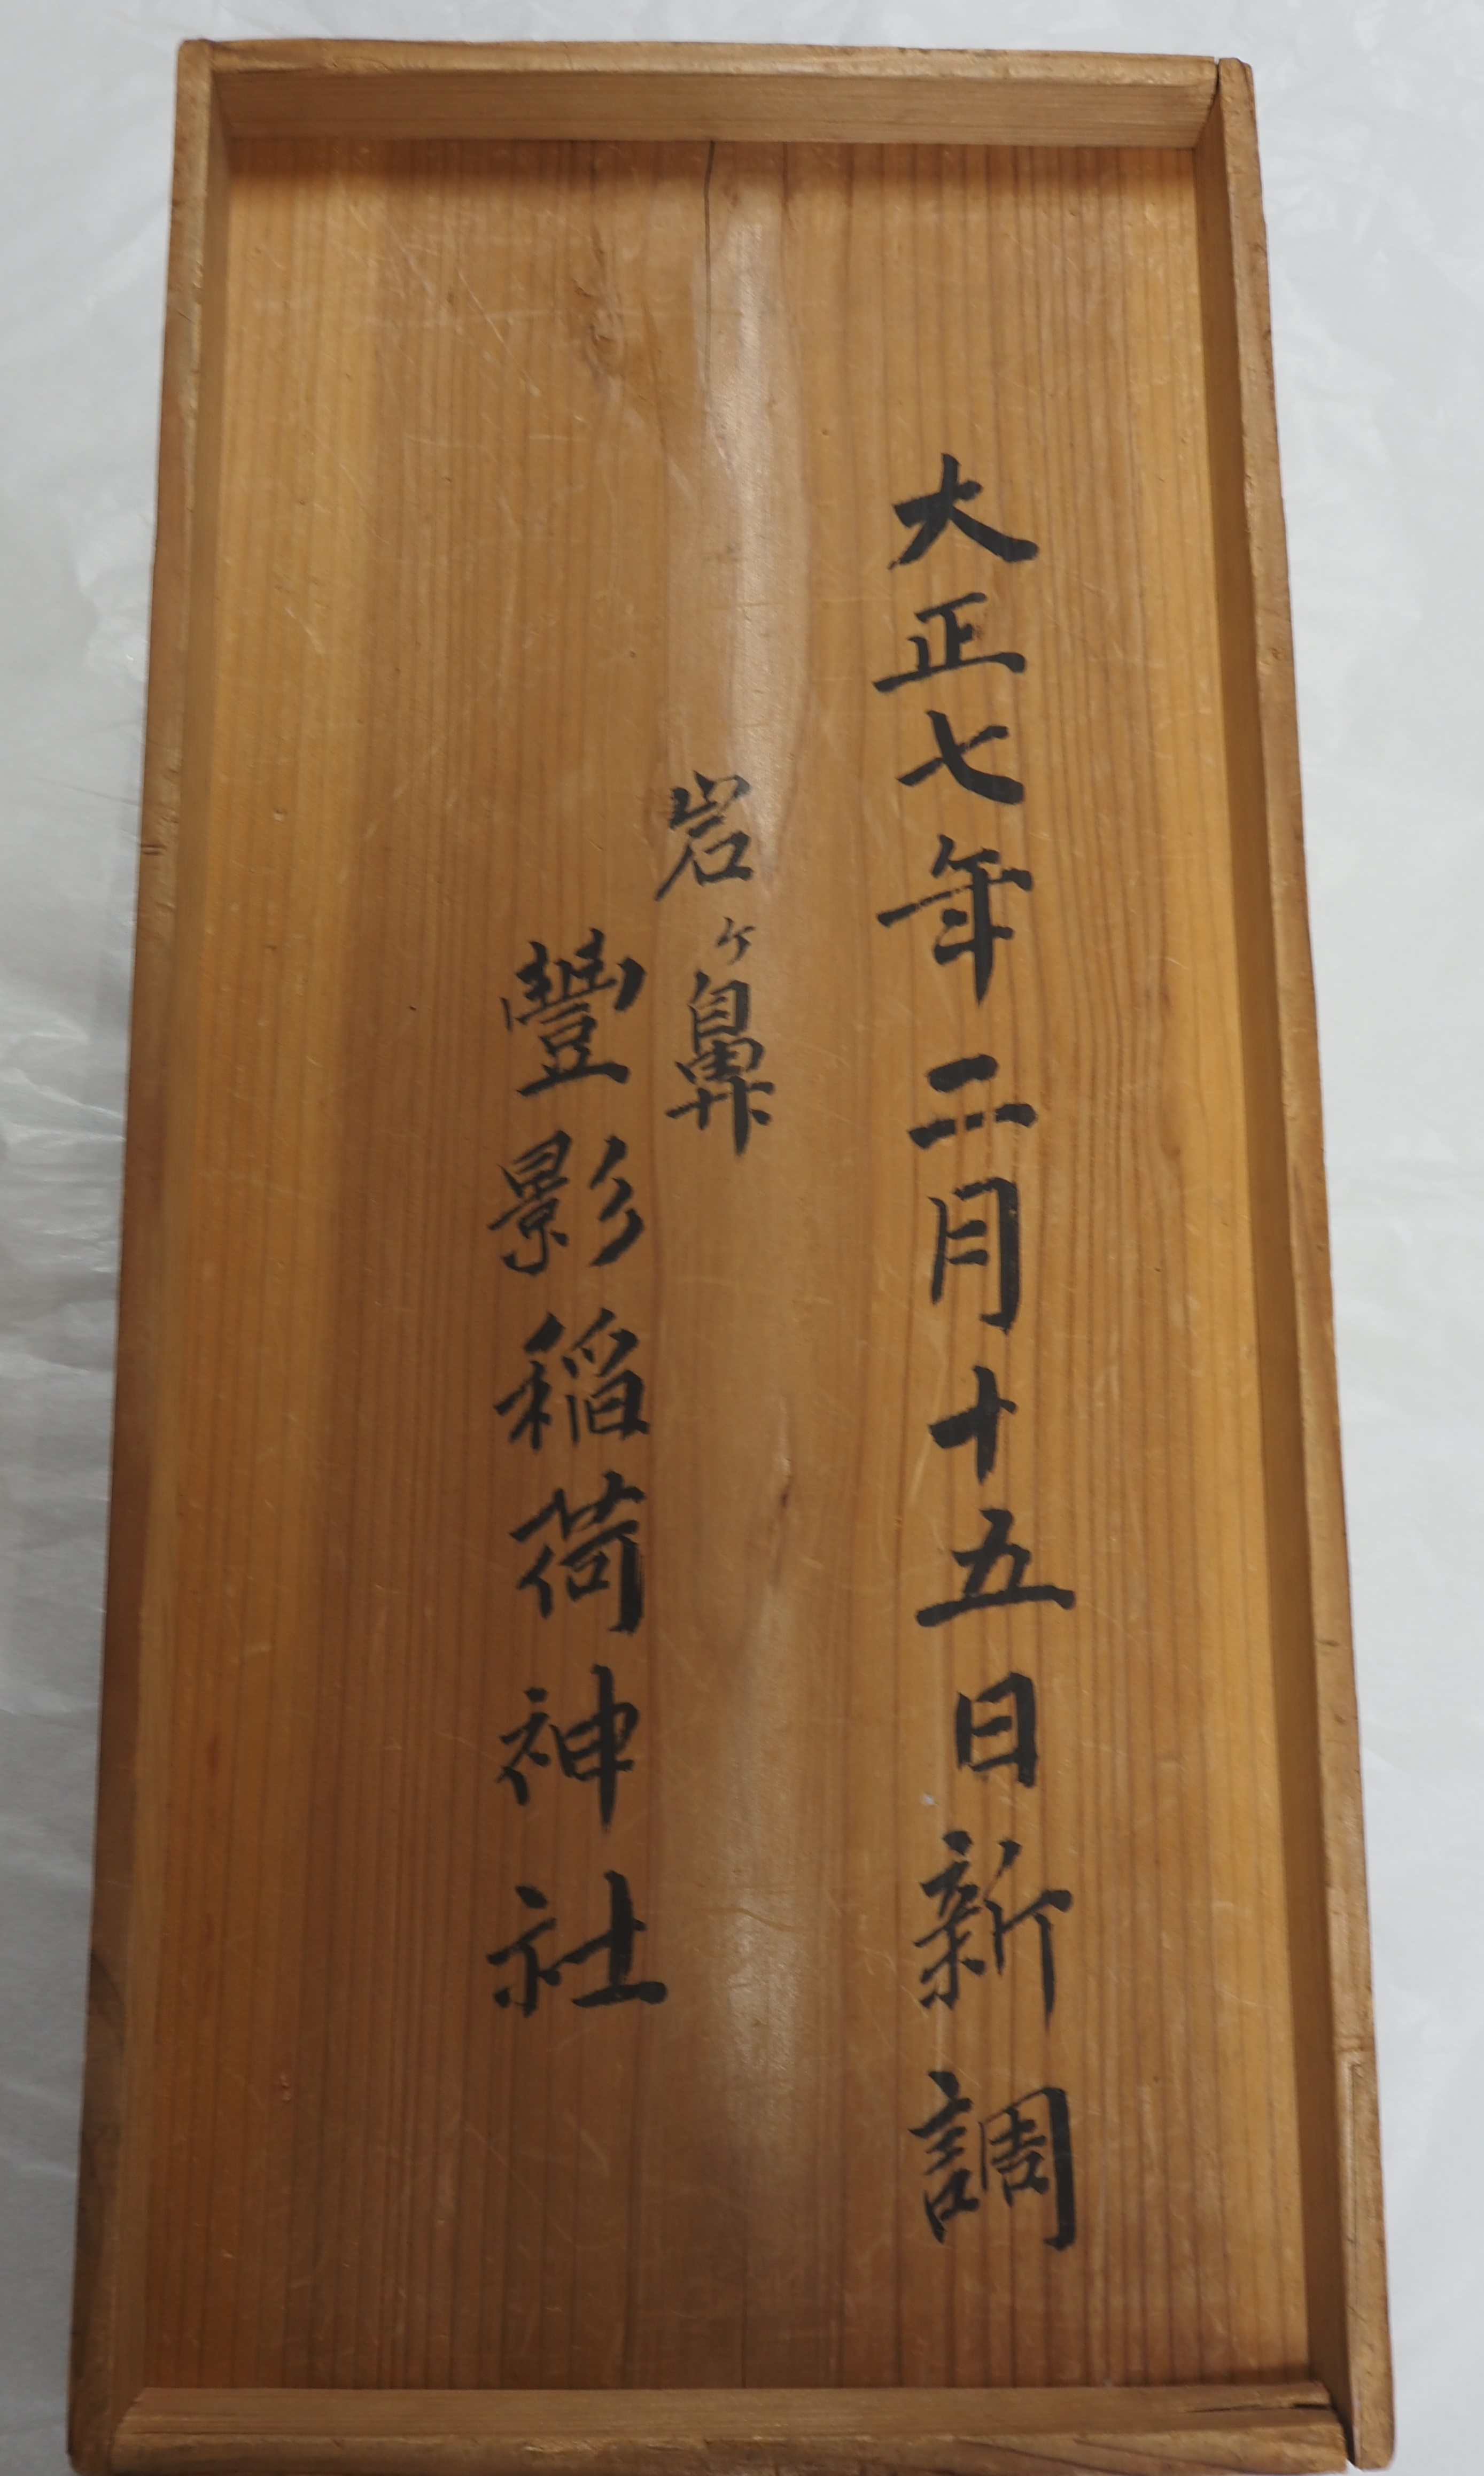 大正七年二月十五日新調
岩ヶ鼻
豐影稲荷神社